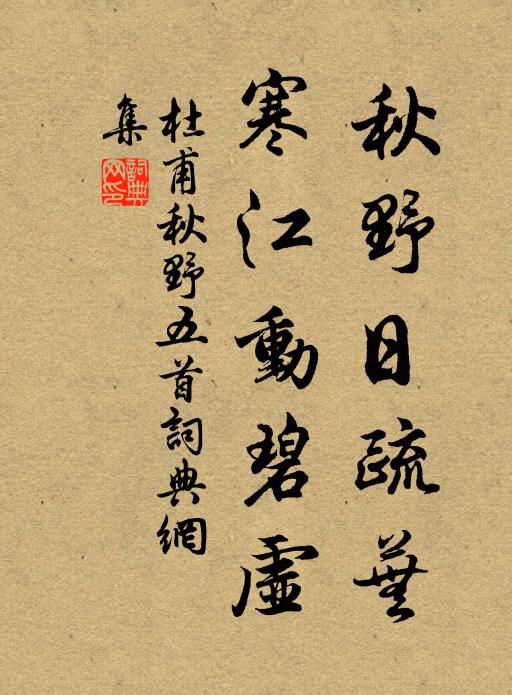 秋野日疏蕪
寒江動碧虛
杜甫秋野五首詞典網
集
詞典網印